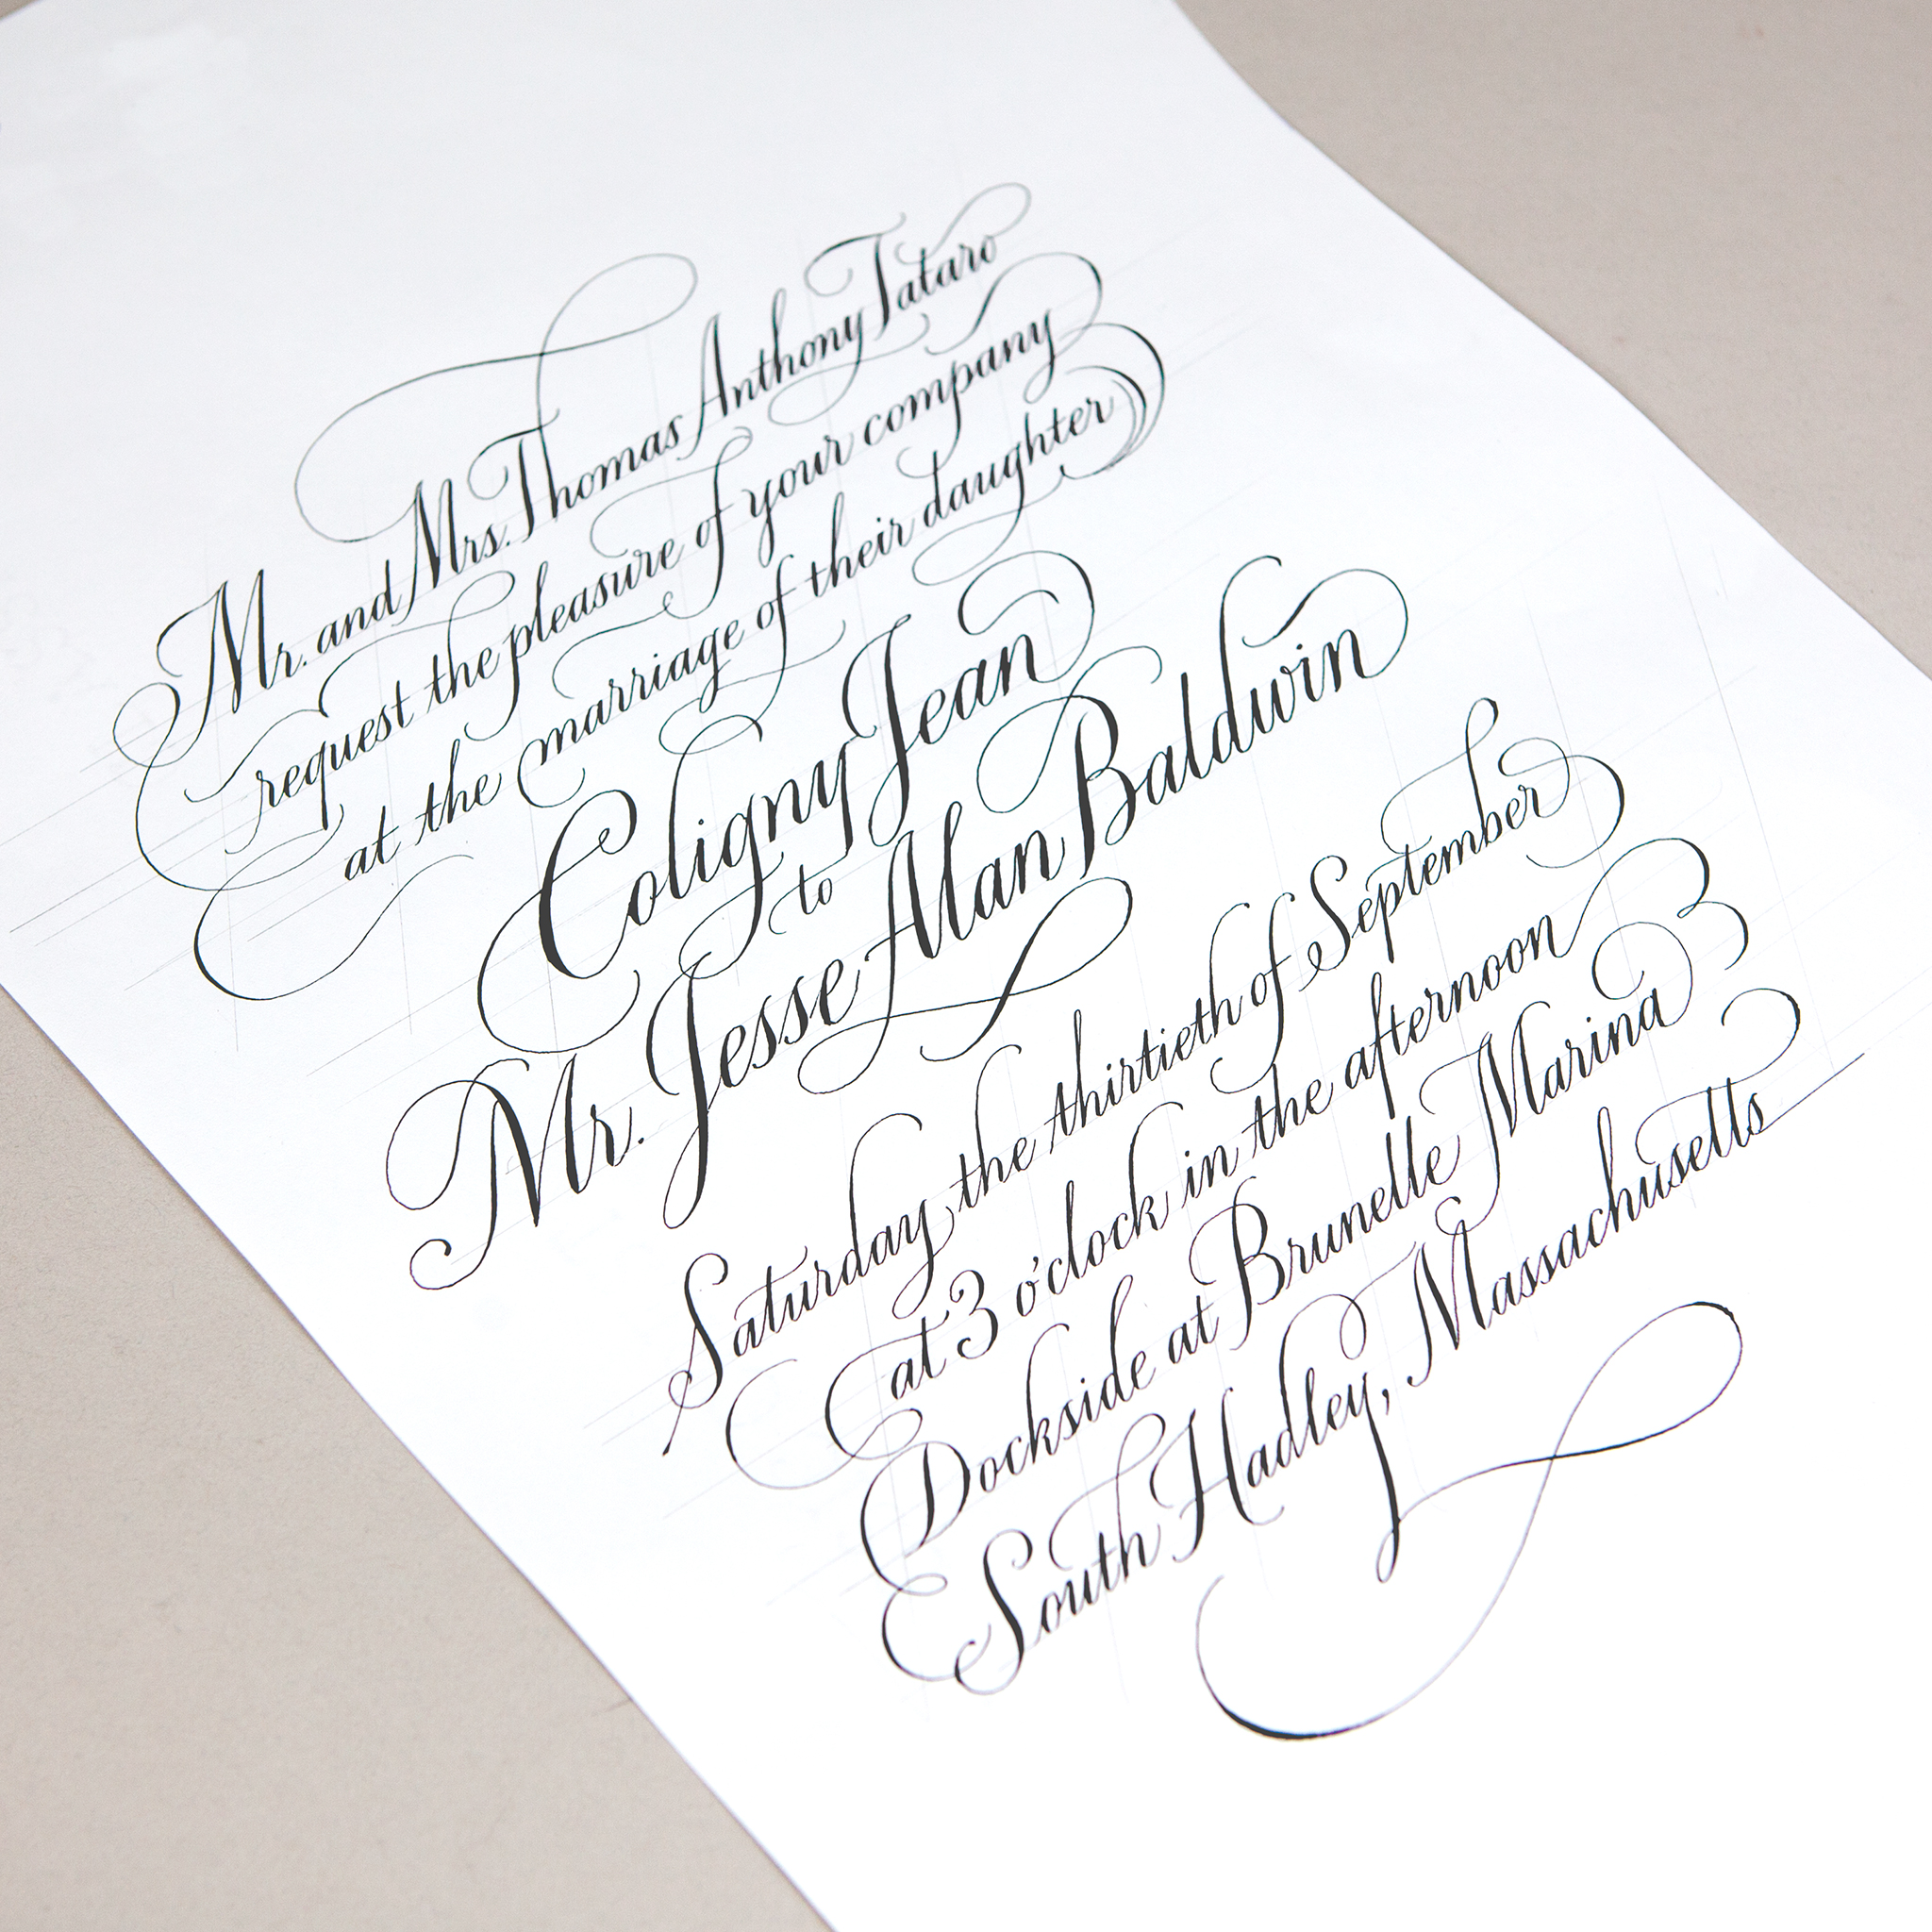 Mr. and Mrs. Thomas Anthony Tataro
request the pleasure of your company
at the marriage of their daughter
Coligny Jean
to
Mr. Jesse Alan Baldwin
Saturday the thirtieth of September
at 3 o'clock in the afternoon
Dockside at Brunelle Marina
South Hadley, Massachusetts